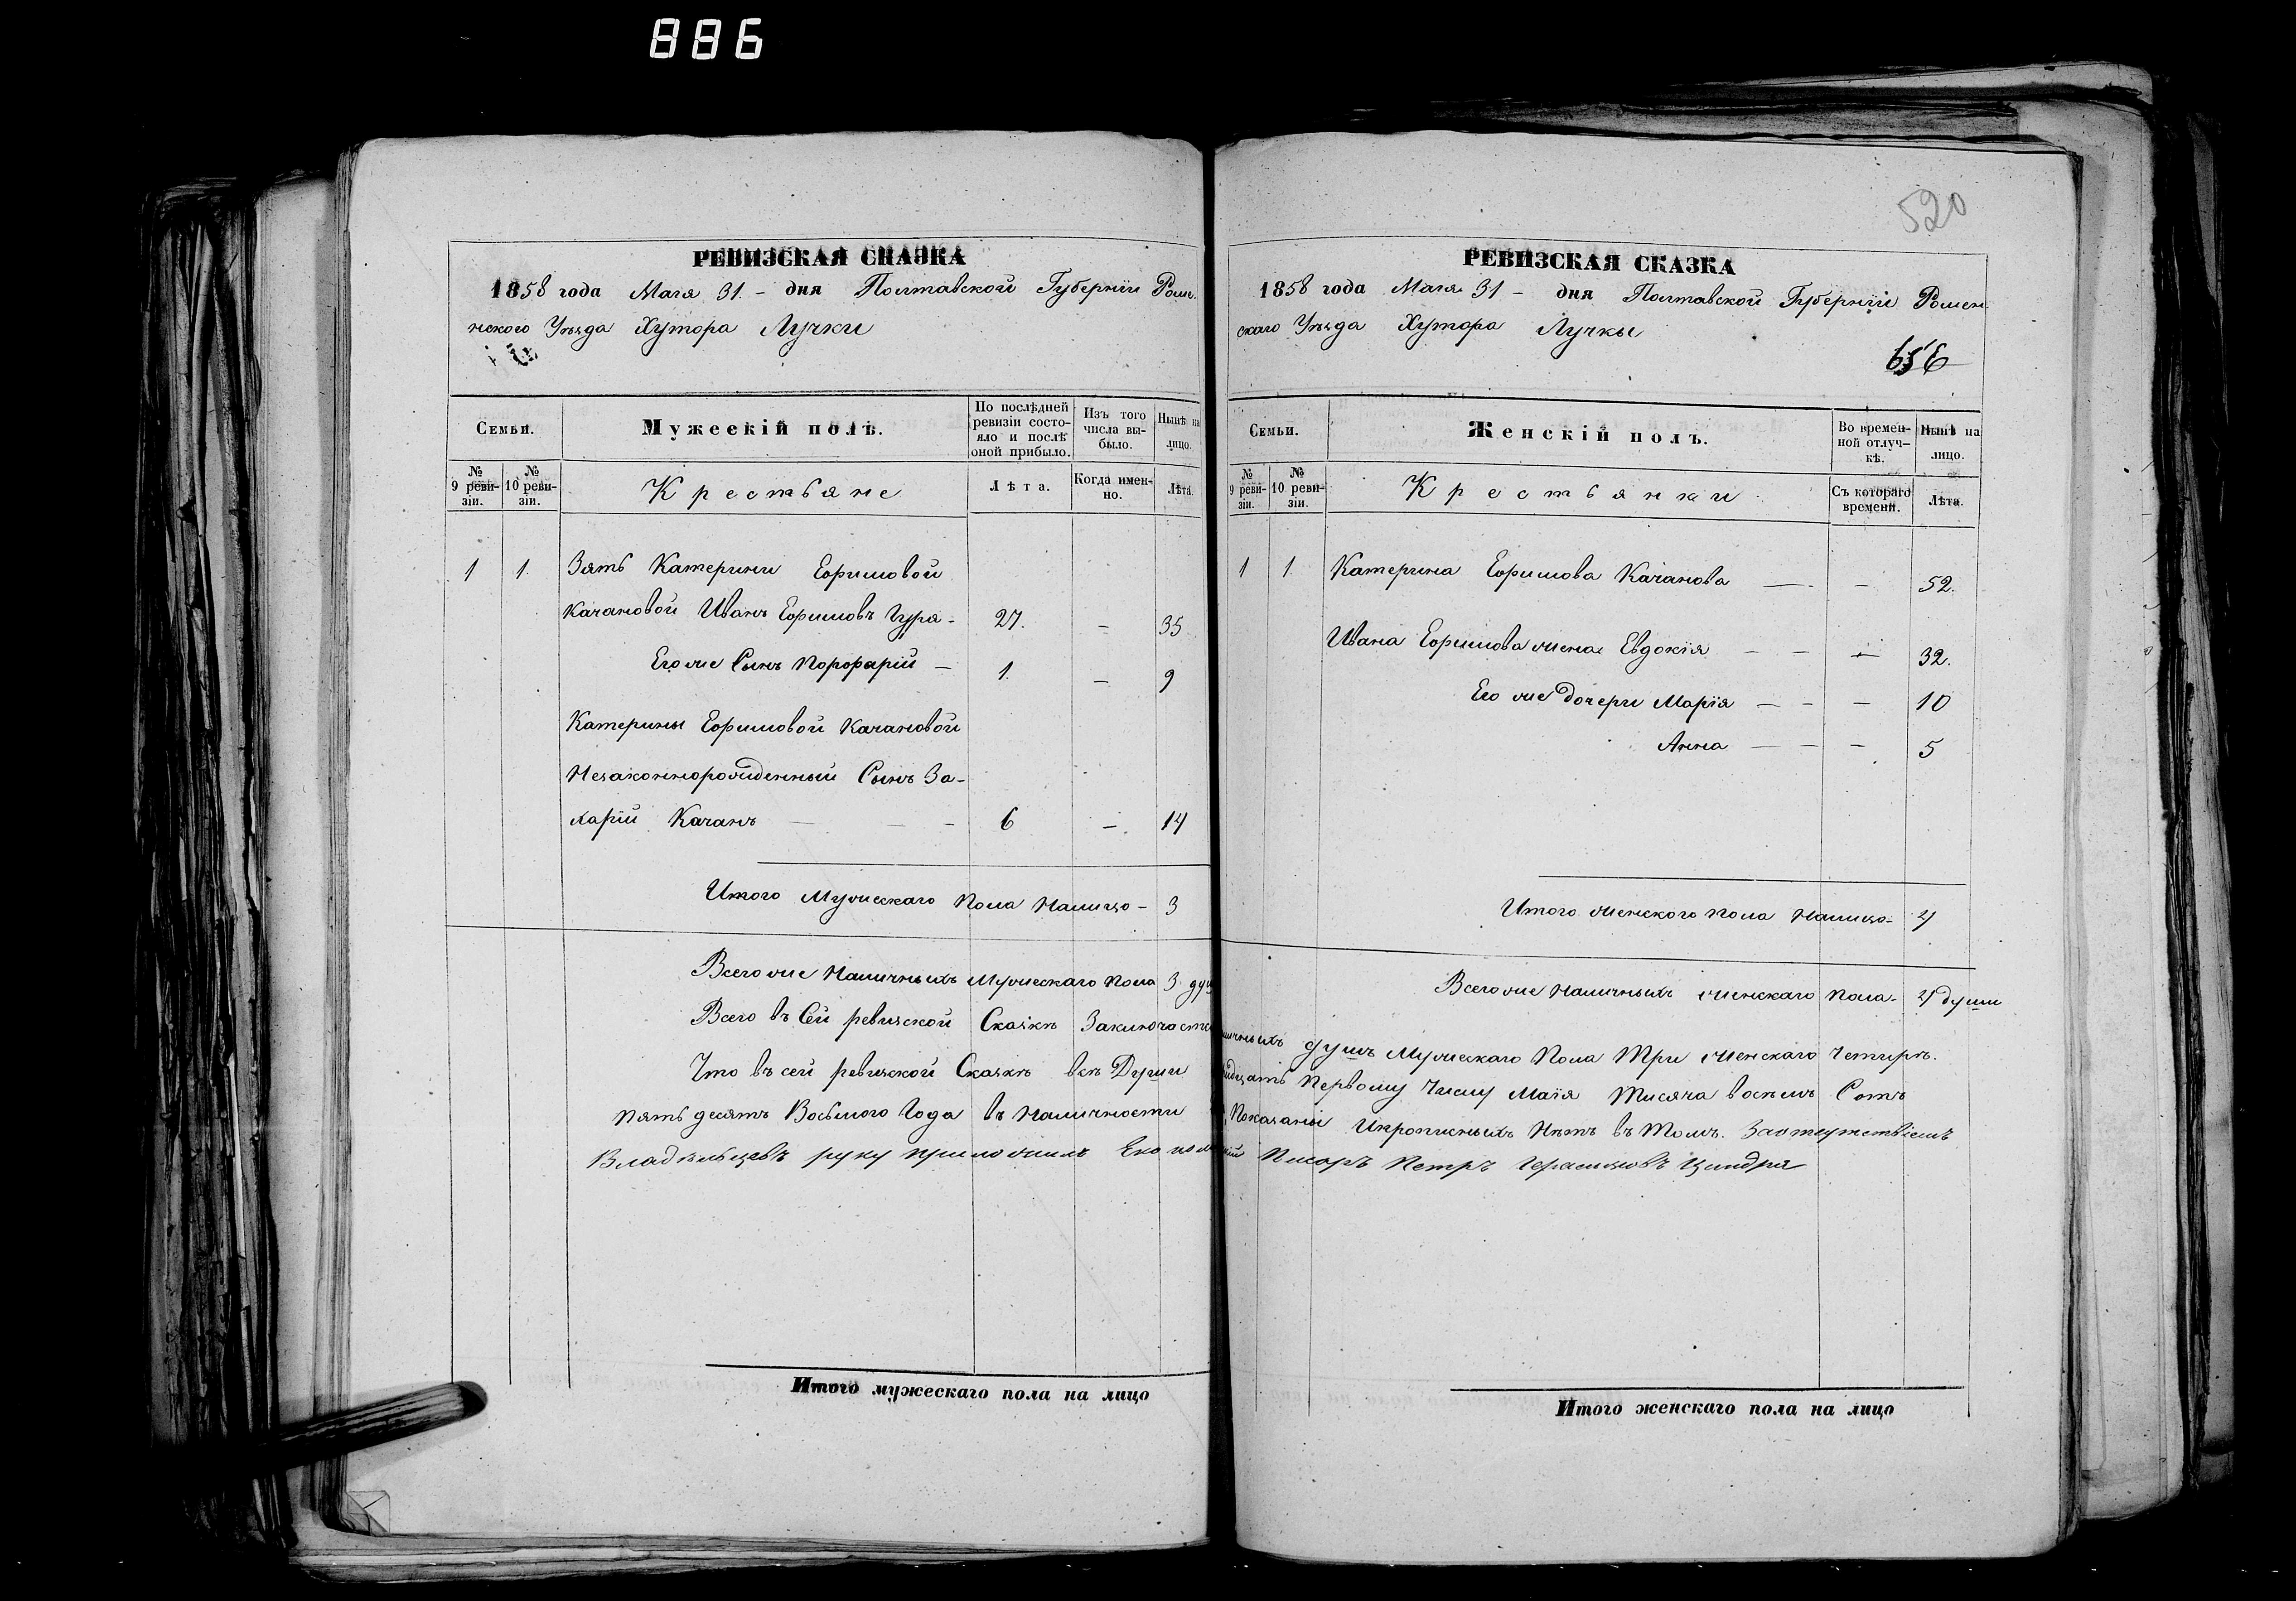 886
РЕВИЗСКАЯ СКАЗКА
1858 года Мая 31. - дня Полтавской Губернии Роме-
нского Уѣзда Хутора Лучки
Семьи.
Мужескій полъ.
По послѣдней ревизіи состояло и послѣ оной прибыло.
Изъ того числа выбыло.
Нынѣ на лицо.
№ 9 ревизіи.
№ 10 ревизіи.
Крестьяне
Лѣта.
Когда именно.
Лѣта.
1 1. Зять Катерини Ефимовой
Качановой Иванъ Ефимовъ Гуря - 27. - 35
Его же Сынъ Порфирій - 1. - 9
Катерины Ефимовой Качановой
Незаконнорожденный Сынъ За-
харій Качанъ - - - 6 - 14
Итого Мужескаго Пола Налицо - 3
Всего же Наличныхъ Мужескаго Пола 3 душ
Всего въ Сей ревизской Сказкѣ Заключаетс
Что въ сей ревизской Сказкѣ всѣ Души
пять десятъ Восьмого Года въ Наличности
Владѣльцевъ руку приложилъ Эконом
520
РЕВИЗСКАЯ СКАЗКА
1858 года Мая 31 - дня Полтавской Губерніи Ромен
скаго Уѣзда Хутора Лучкы
Семьи.
Женскій полъ.
Во временной отлучкѣ.
Нынѣ на лицо.
№ 9 ревизіи.
№ 10 ревизіи.
Крестьянки
Съ котораго времени.
Лѣта.
1 1 Катерина Ефимова Качанова - - 52.
Ивана Ефимова жена Евдокія - - - 32.
Его же дочери Марія - - - 10
Анна - - - 5
Итого женского пола Налицо - 4
Всего же Наличныхъ женскаго пола - 4 души
личныхъ душъ Мужескаго Пола Три женскаго Четирѣ.
идцать первому Числу Маія Тисяча восѣмъ Сотъ
Показаны И прописныхъ Нѣтъ въ Томъ. За отсутствіемъ
Писарь Петръ Герасимовъ Циндря
Итого мужескаго пола на лицо
Итого женскаго пола на лицо